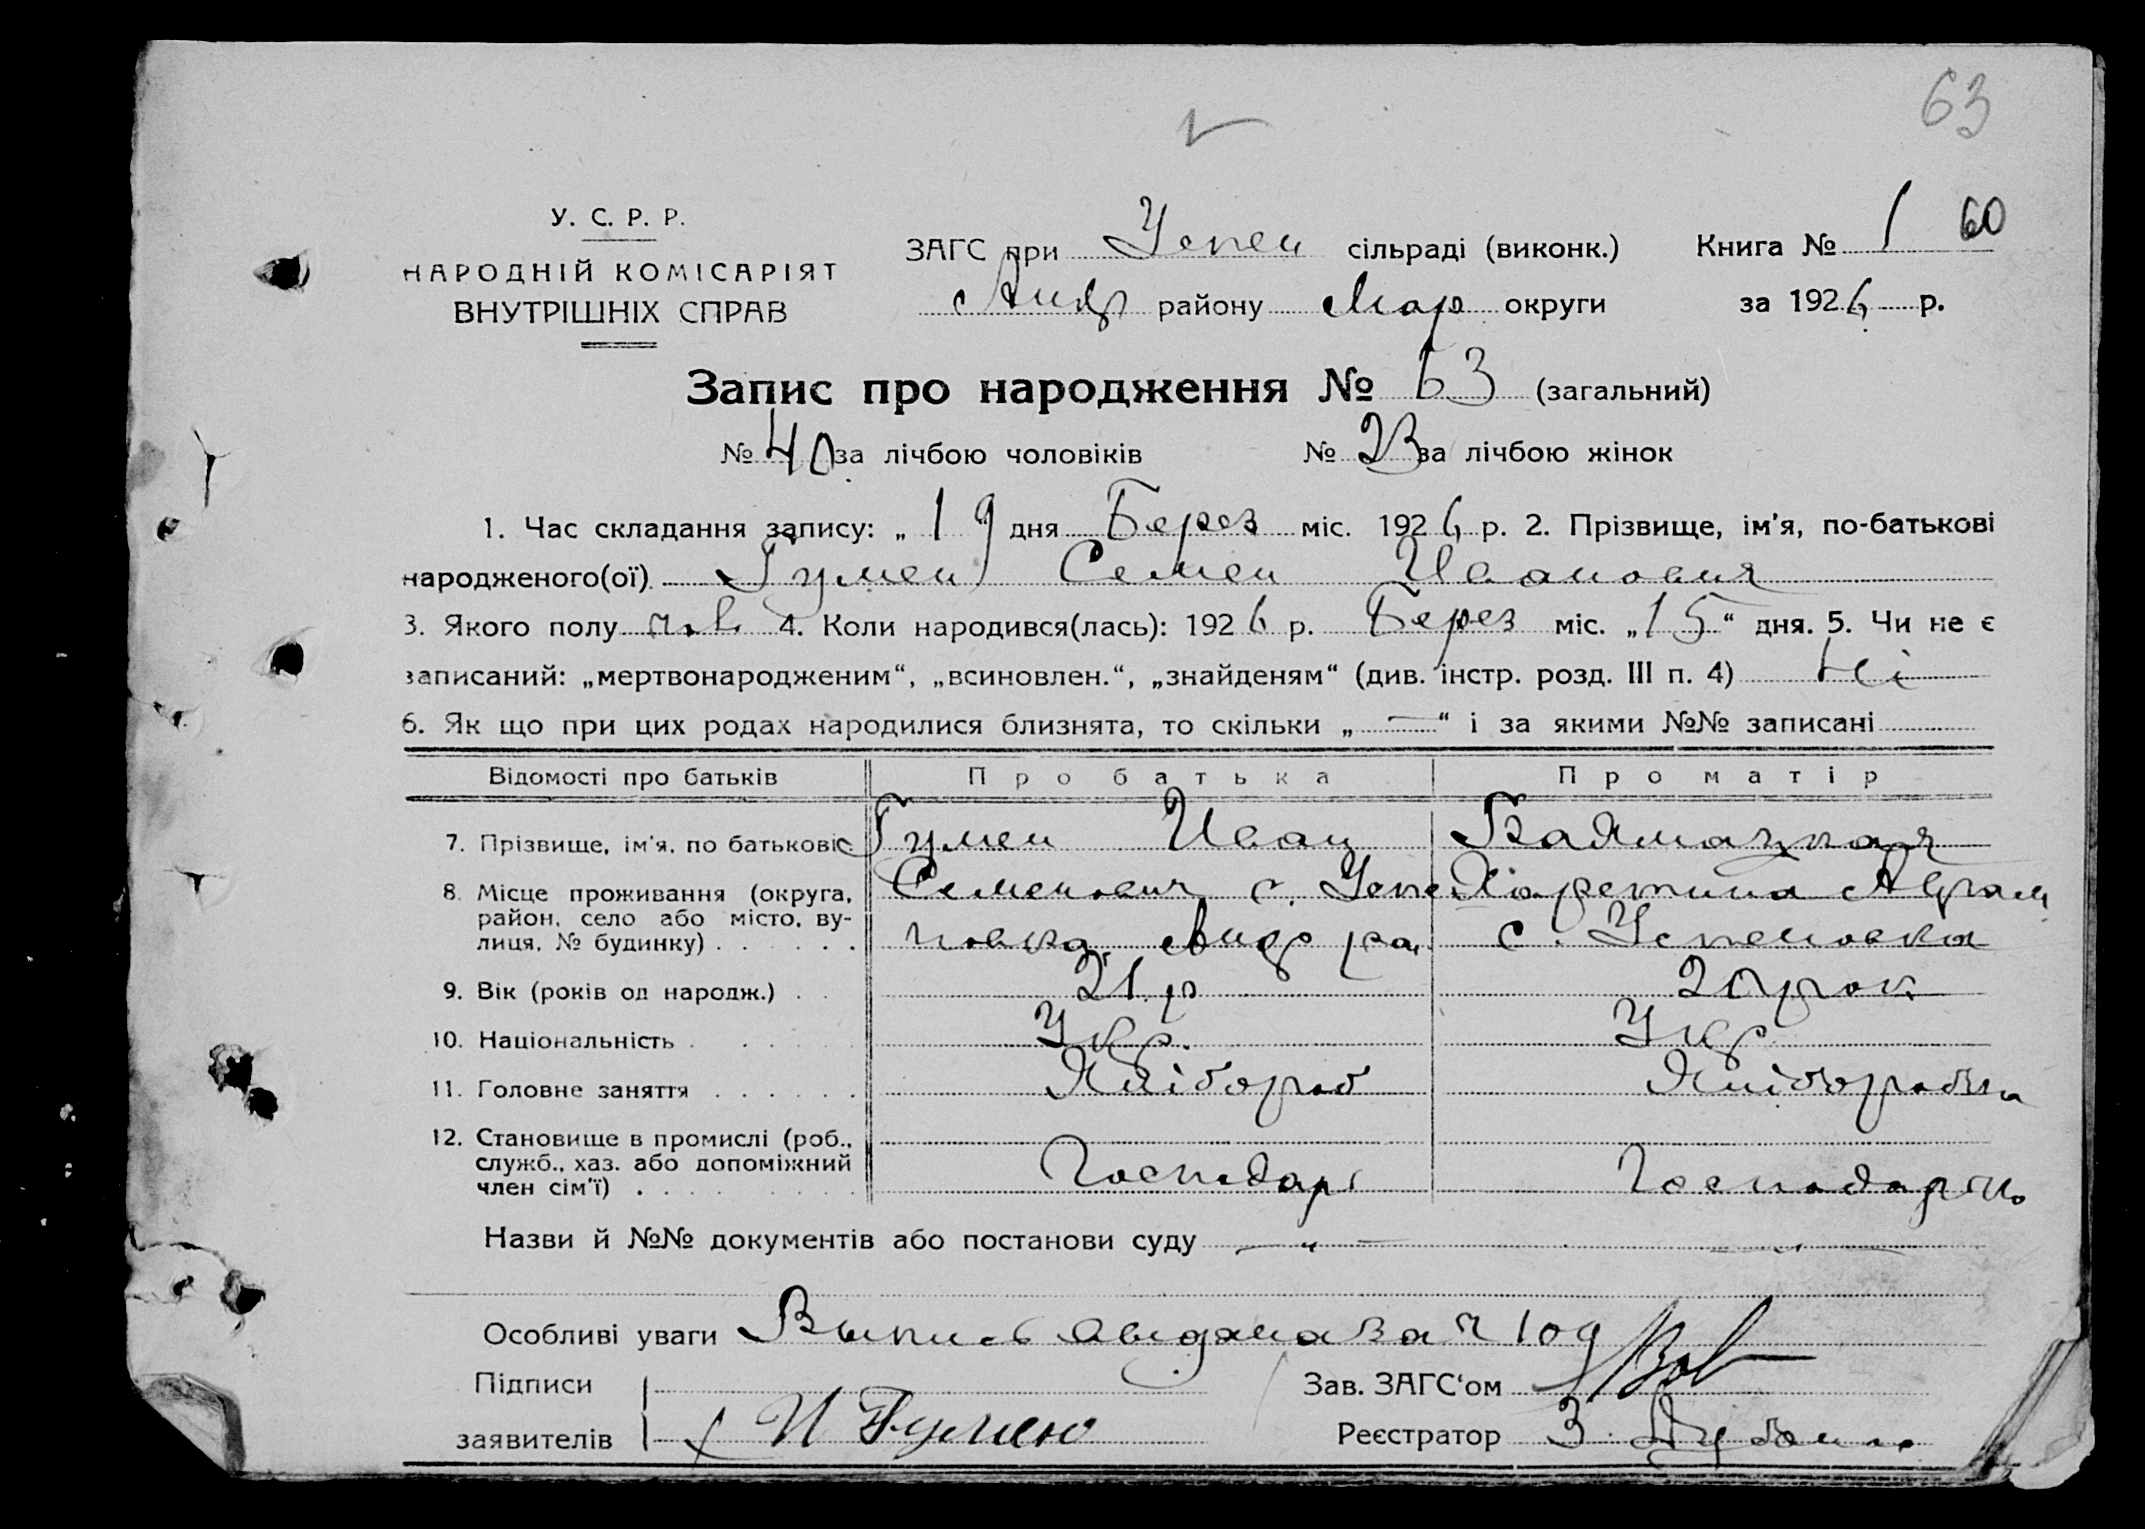 63
У. С. Р. Р.
НАРОДНІЙ КОМІСАРІЯТ
ВНУТРІШНІХ СПРАВ
ЗАГС при Успен сільраді (виконк.)
Андр району Мар округи
Книга № 1 60
за 1926 р.
Запис про народження № 63 (загальний)
№ 40 за лічбою чоловіків № 23 за лічбою жінок
1. Час складання запису: „ 19 " дня Берез міс. 1926 р. 2. Прізвище, ім'я, по-батькові
народженого(ої) Гумен Семен Иванович
3. Якого полу чол. 4. Коли народився(лась): 1926 р. Берез міс. „15" дня. 5. Чи не є
записаний: „мертвонародженим", „всиновлен.", „знайденям" (див. інстр. розд. III п. 4) Ні
6. Як що при цих родах народилися близнята, то скільки „ — " і за якими №№ записані
Відомості про батьків Про батька Про матір
7. Прізвище, ім'я, по батькові Гумен Иван
8. Місце проживання (округа, район, село або місто, вулиця, № будинку) Семенович с. Успеновка, Андр ра. Аврам с. Успеновка
9. Вік (років од народж.) 21 р 20 рок
10. Національність Укр. Укр
11. Головне заняття Хлібороб Хліборобка
12. Становище в промислі (роб., служб., хаз. або допоміжний член сім'ї) Господарь
Назви й №№ документів або постанови суду — „ — — „ —
Особливі уваги Выпись
Підписи
заявителів И Гумен
Зав. ЗАГС'ом
Реєстратор З.